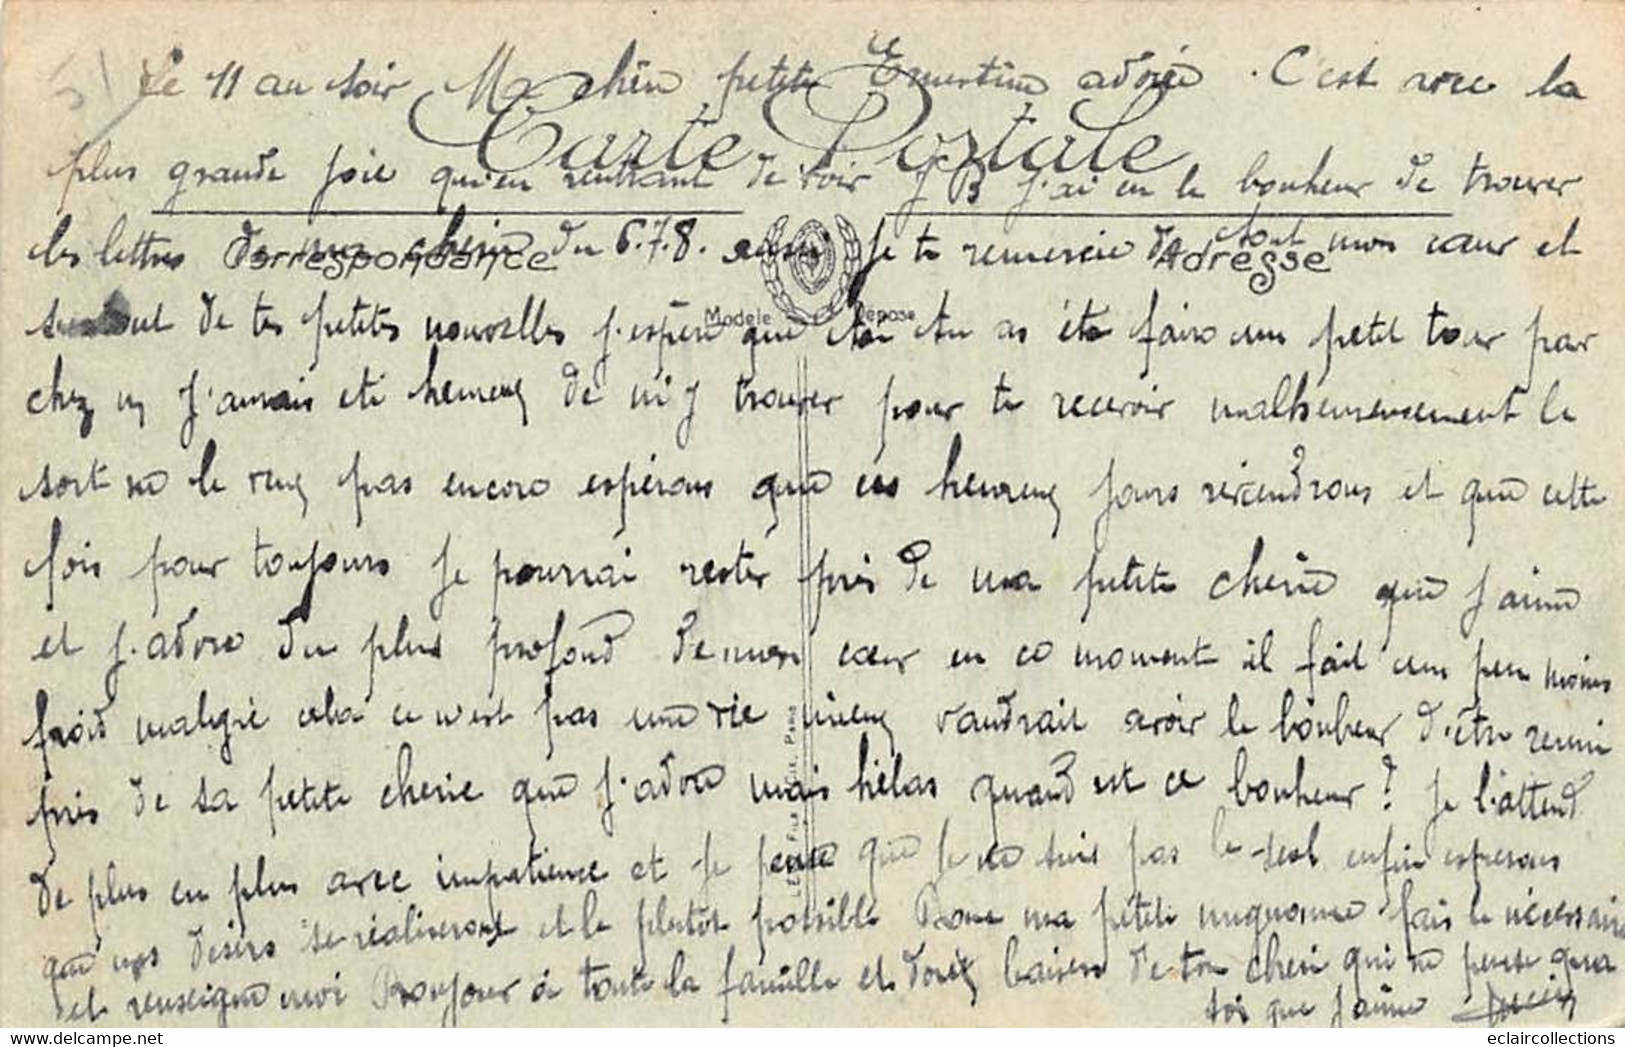 Le 11 au soir Ma chère petite Ernestine adorée. C'est avec la
Carte Postale
plus grande joie qu'en rentrant de voir J B j'ai eu le bonheur de trouver
les lettres de ma cherie du 6.7.8. aussi je te remercie de tout mon cœur et
Correspondance
Adresse
surtout de tes petites nouvelles j'espère que toi tu as été faire un petit tour par
Modèle Déposé
chez n j'aurais été heureux de m'y trouver pour te recevoir malheureusement le
sort ne le veux pas encore espérons que ces heureux jours reviendrons et que cette
fois pour toujours je pourrai rester près de ma petite cherie que j'aime
et j'adore du plus profond de mon cœur en ce moment il fait un peu moins
froid malgré cela ce n'est pas une vie mieux vaudrait avoir le bonheur d'être reuni
près de sa petite cherie que j'adore mais hélas quand est ce bonheur? je l'attend
de plus en plus avec impatience et je pense que je ne suis pas le seul enfin esperons
que nos desirs se réaliseront et le plutot possible Bonne ma petite mignonne fais le nécessaire
et renseigne moi Bonjour à toute la famille et doux baisers de ton cheri qui ne pense qua
toi que j'aime
Fils & Cie, Paris
eclaircollections